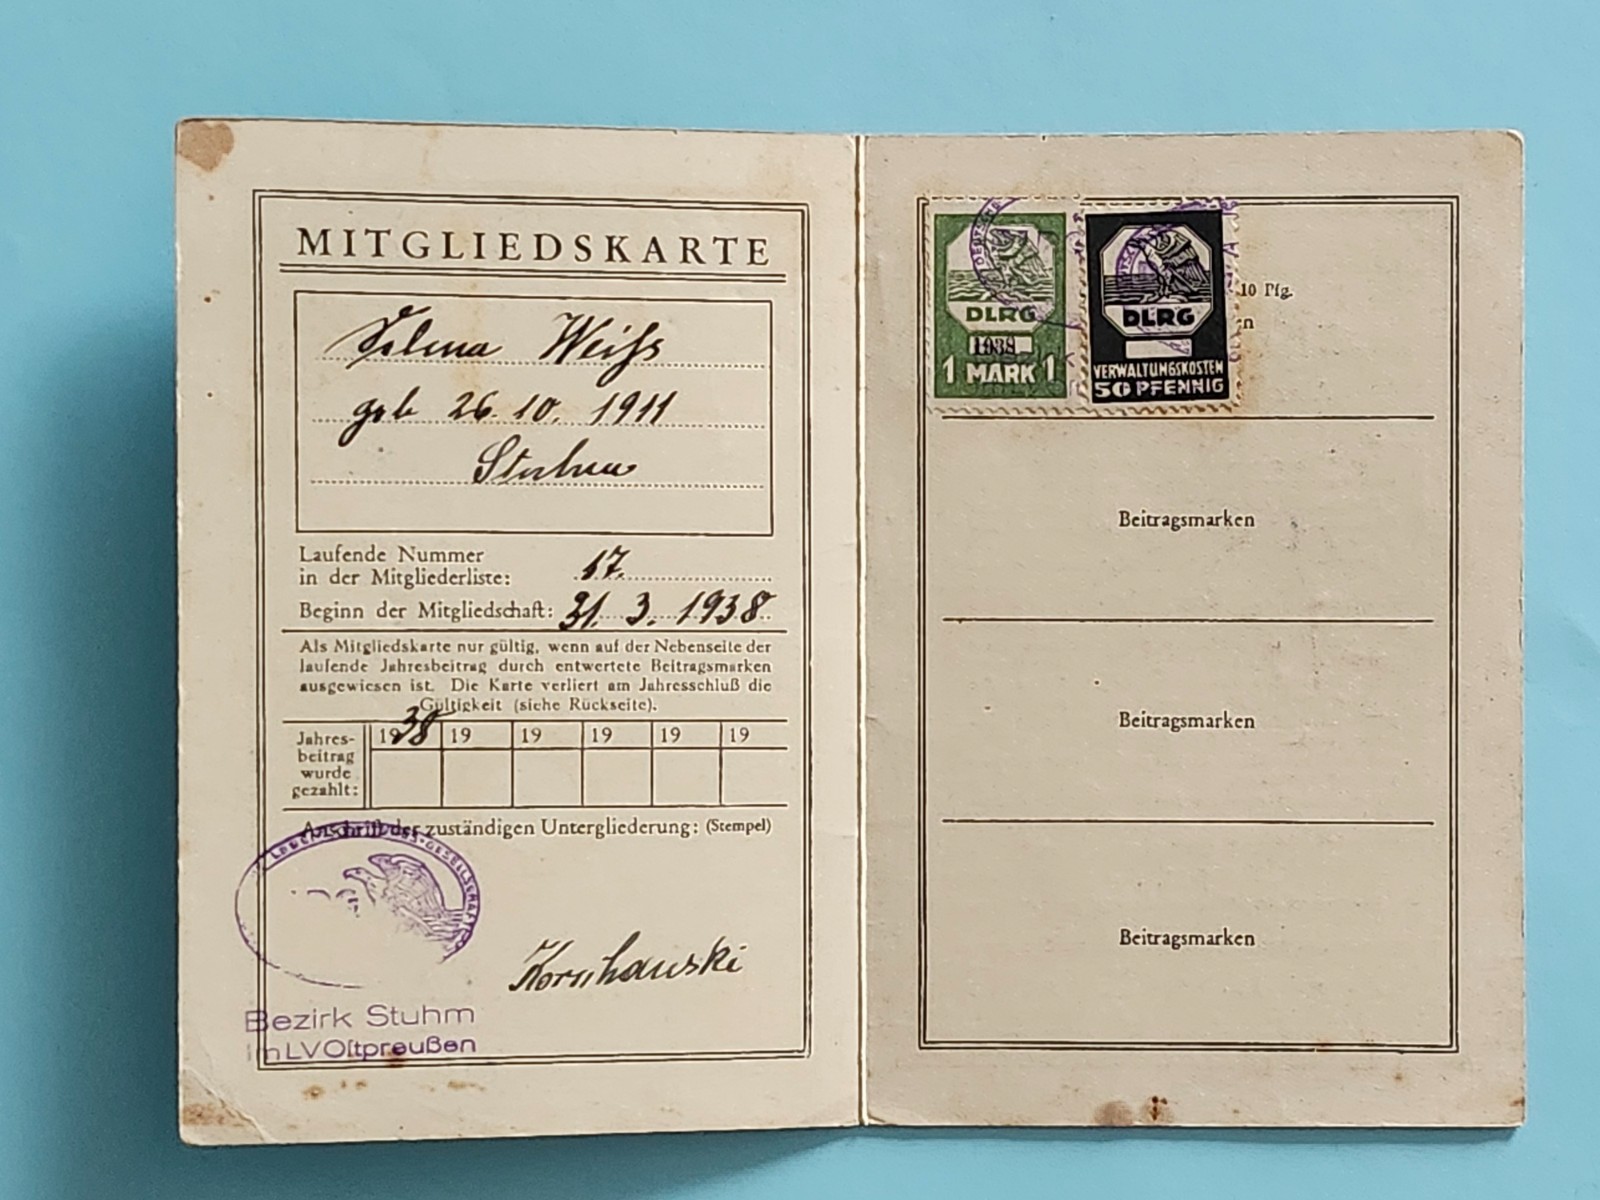 MITGLIEDSKARTE
Weiß
geb 26. 10. 1911
Laufende Nummer
in der Mitgliederliste: 17.
Beginn der Mitgliedschaft: 31. 3. 1938
Als Mitgliedskarte nur gültig, wenn auf der Nebenseite der
laufende Jahresbeitrag durch entwertete Beitragsmarken
ausgewiesen ist. Die Karte verliert am Jahresschluß die
Gültigkeit (siehe Rückseite).
Jahres-
beitrag
wurde
gezahlt:
1938 19 19 19 19 19
Anschrift der zuständigen Untergliederung: (Stempel)
GESELLSCHAFT
Kornhawski
Bezirk Stuhm
im LV Oſtpreußen
DLRG
1938
1 MARK 1
DLRG
VERWALTUNGSKOSTEN
50 PFENNIG
10 Pfg.
Beitragsmarken
Beitragsmarken
Beitragsmarken